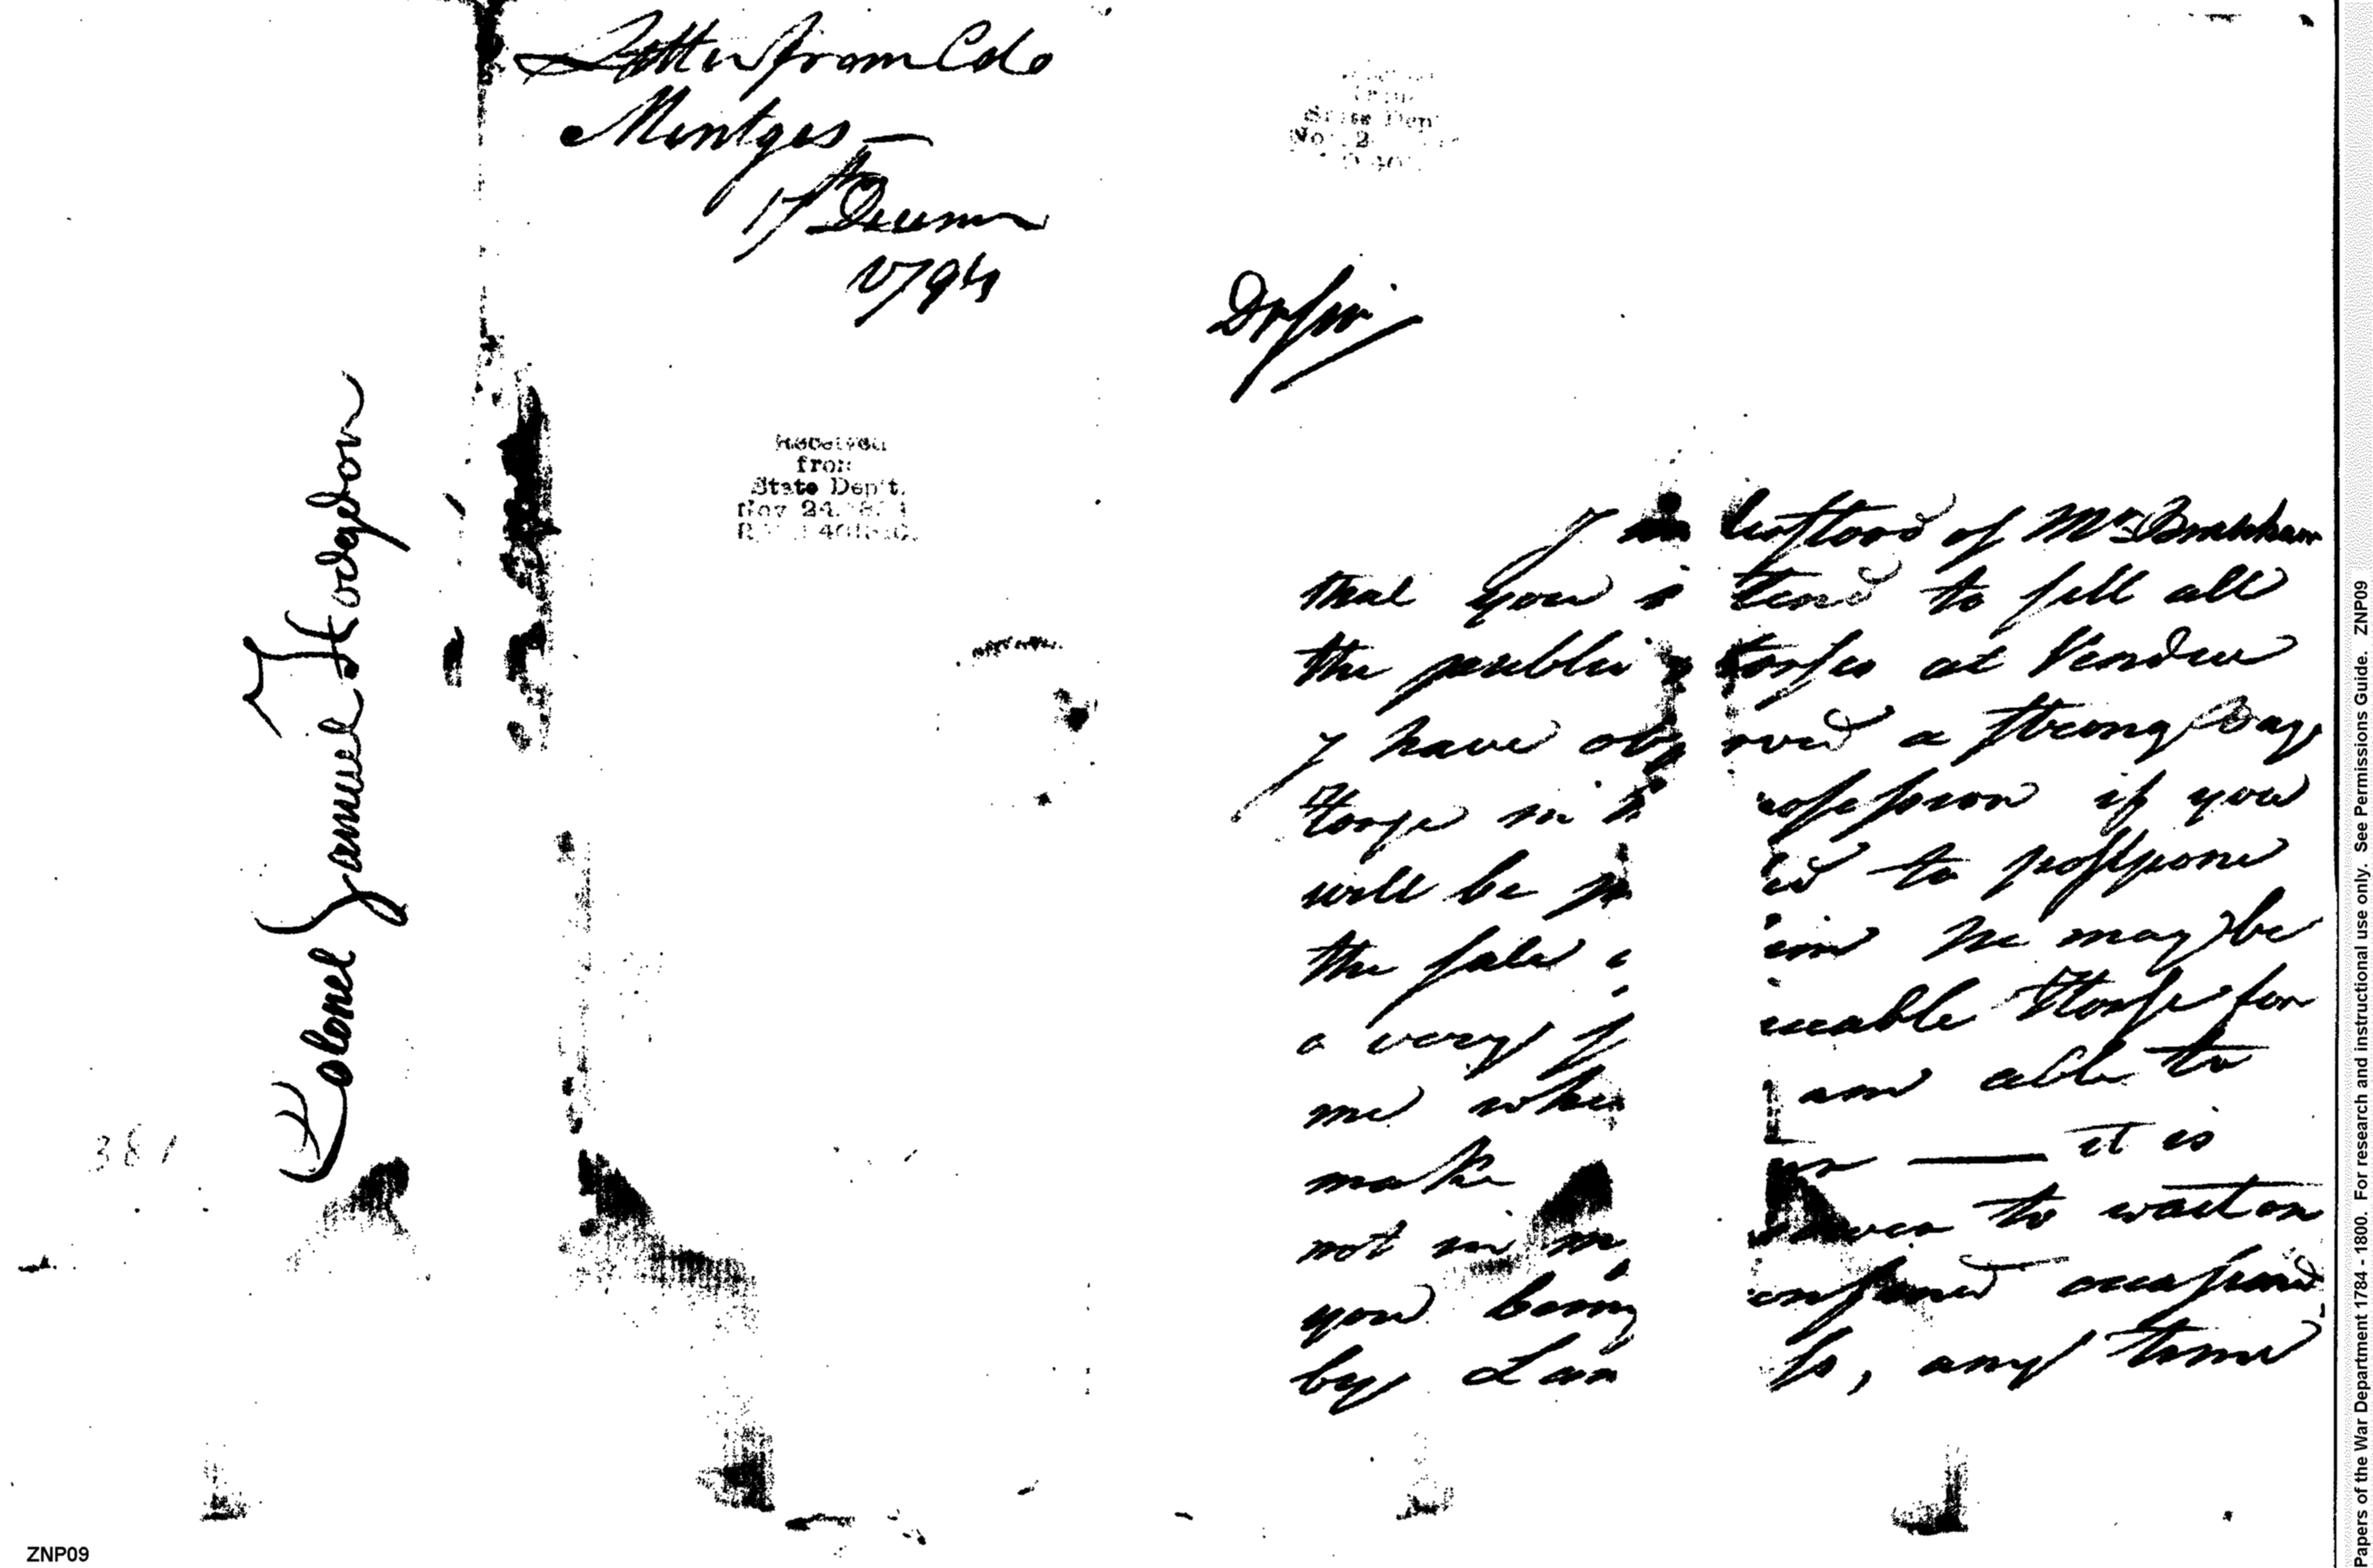 Letter from Colo
Mentges—
17th Decemr
1794
Colonel Samuel Hodgdon
Received
from
State Dep't.
Nov 24
381
State Dep
No 2
Dr Sir
I derstood of Mr
that you tend to sell all
the public Horses at Vendue
I have ob rved a strong Bay
Horse in ossession if you
will be p ed to postpone
the sale im he may be
a very uable Horse for
me when am able to
make — it is
not in m to wait on
you being onfined occasiond
by Lam ss, any time
ZNP09
Papers of the War Department 1784 - 1800. For research and instructional use only. See Permissions Guide. ZNP09